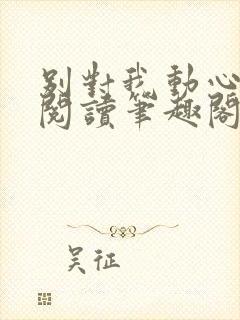 別對我動心
閱讀筆趣閣
吴征